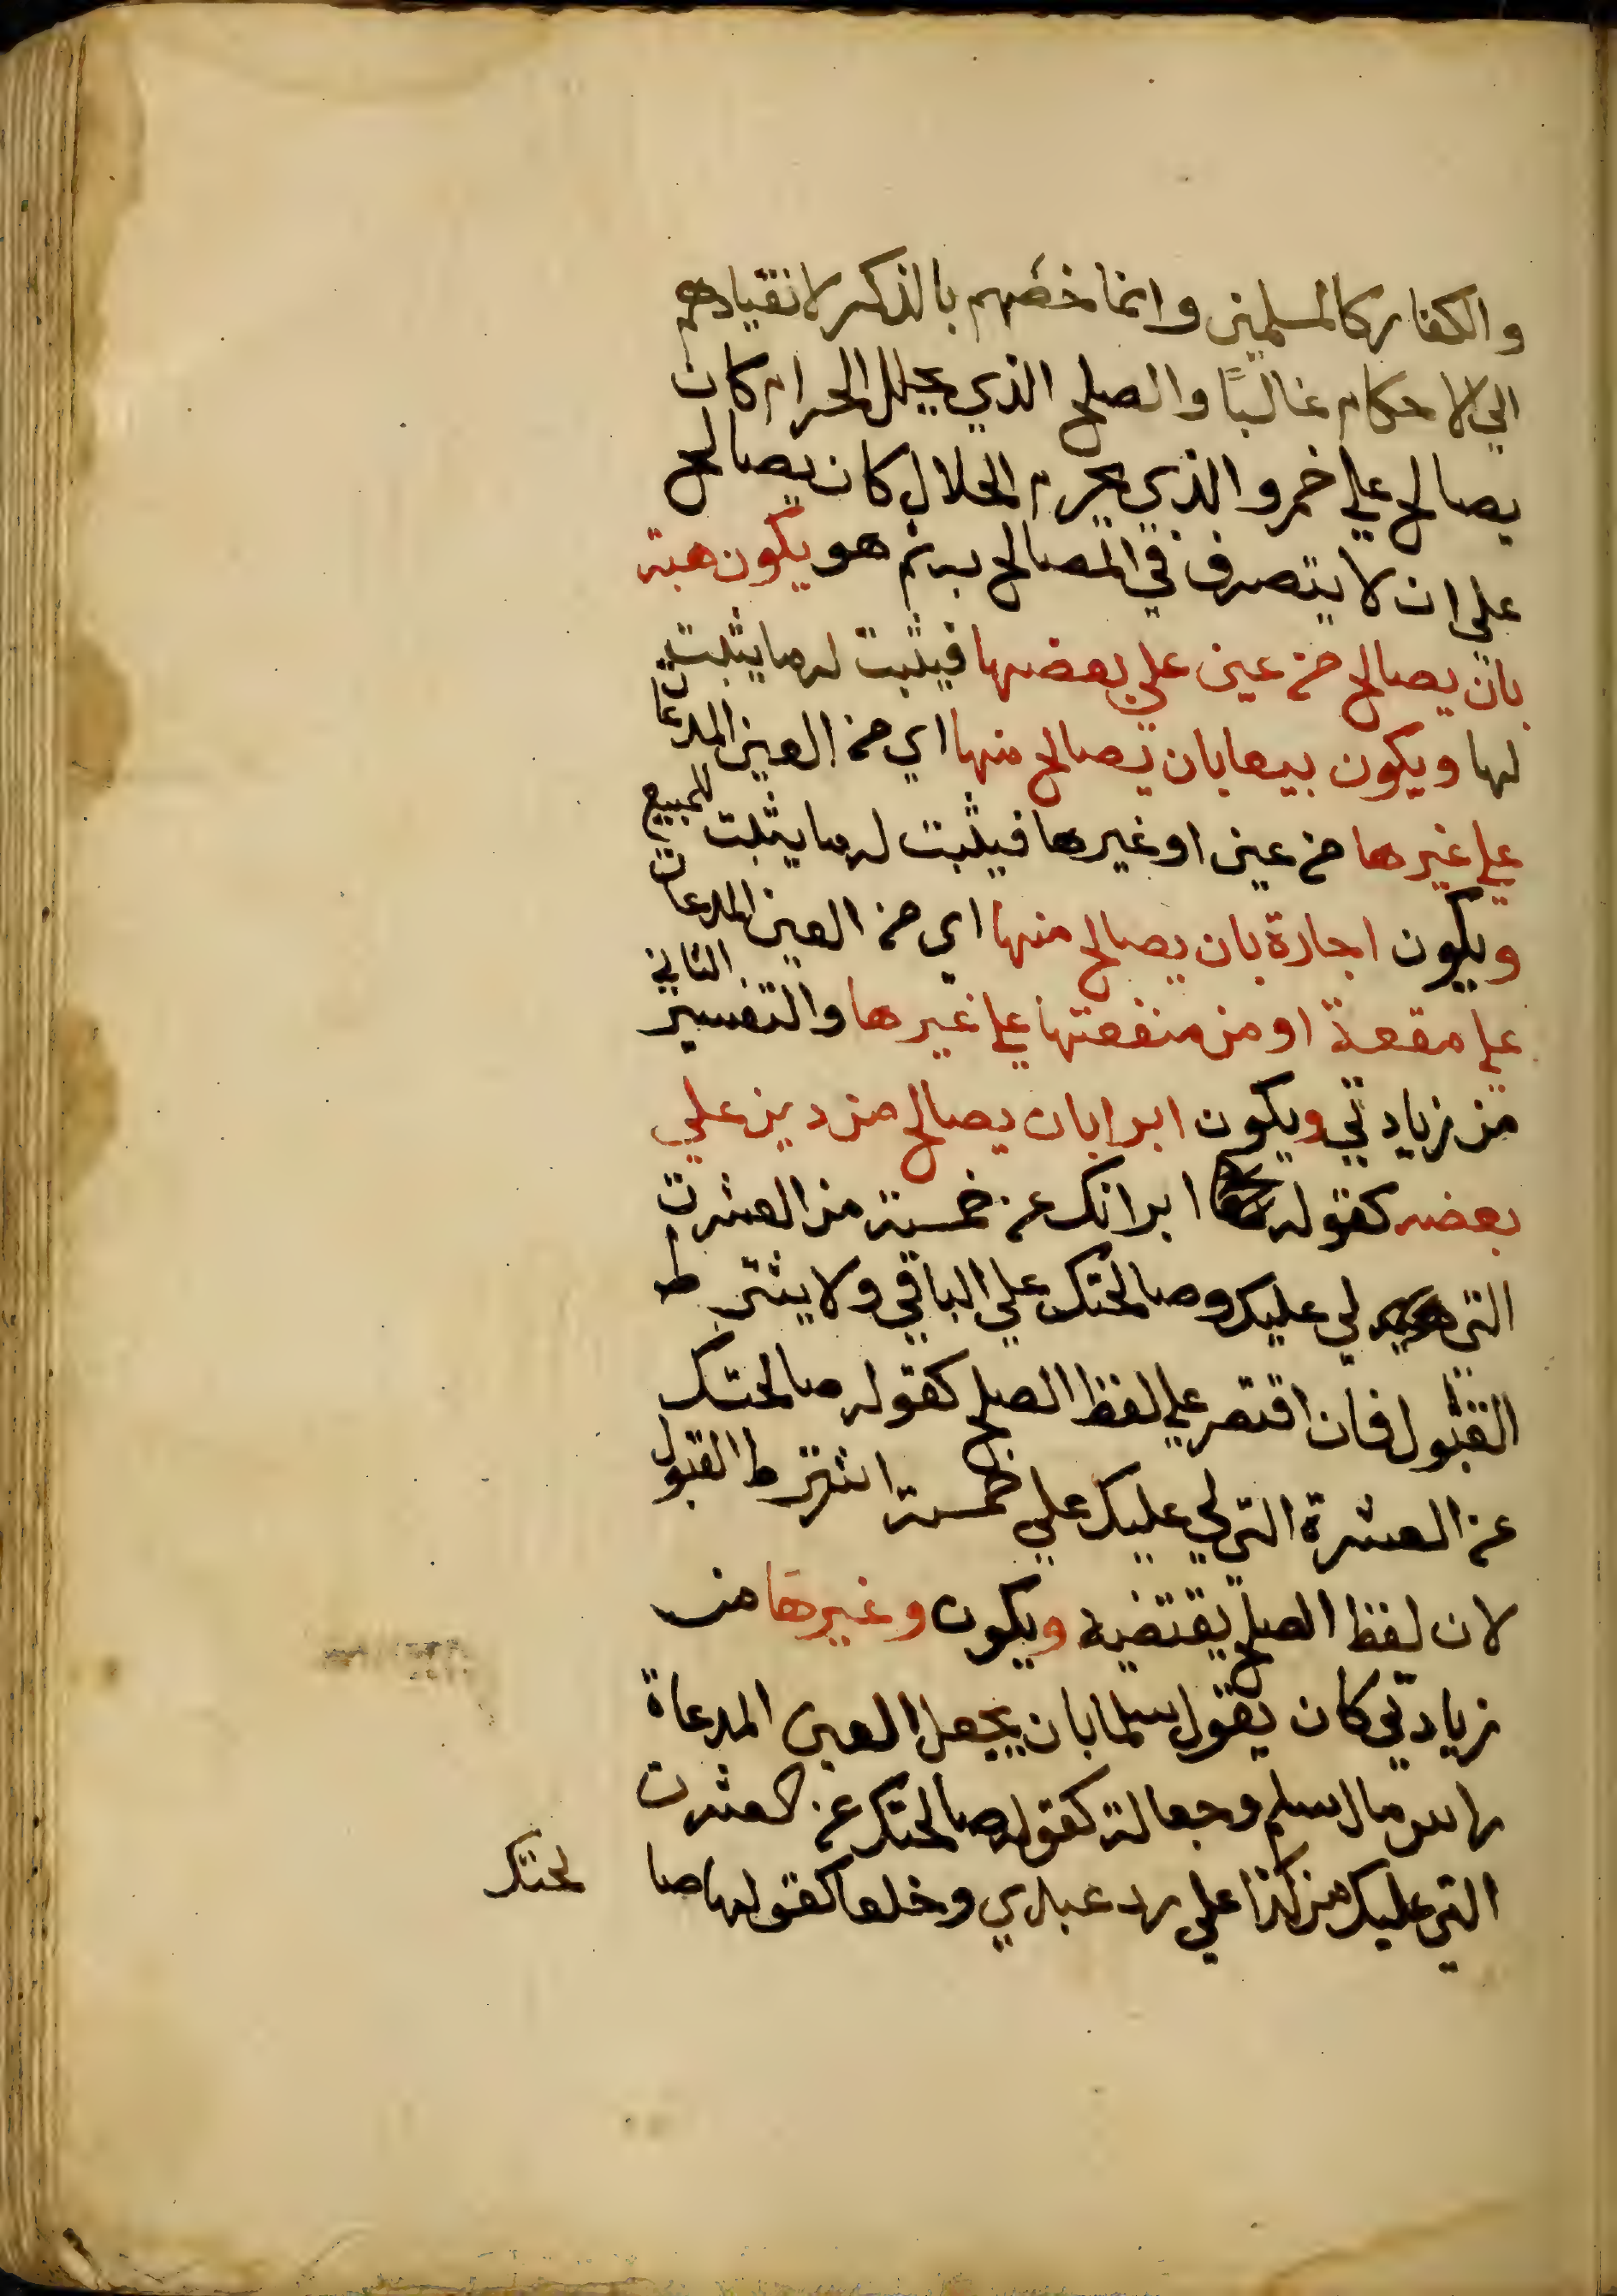 والكفار كالمسلمين وانما خصهم بالذكر لانقيادهم
الي الاحكام غالبًا والصلح الذي يحلل الحرام كان
يصالح علي خمر والذي يحرم الحلال كان يصالح
علي ان لا يتصرف في المصالح به ثم هو يكون هبة
بان يصالح من عين علي بعضها فيثبت له ما يثبت
لها ويكون بيعا بان يصالح منها اي من العين المدعات
علي غيرها من عين او غيرها فيثبت له ما يثبت للمبيع
ويكون اجارة بان يصالح منها اي من العين المدعات
علي مقعة او من منفعتها علي غيرها والتفسير الثاني
من زيادتي ويكون ابرا بان يصالح من دين علي
بعضه كقوله ابراتك عن خمسة من العشرت
التي لي عليك وصالحتك علي الباقي ولا يشترط
القبول فان اقتصر علي لفظ الصلح كقوله صالحتك
عن العشرة التي لي عليك علي خمسة اشترط القبول
لان لفظ الصلح يقتضيه ويكون وغيرها من
زيادتي كان يقول سلما بان يجعل العين المدعاة
راس مال سلم وجعالة كقوله صالحتك عن العشرت
التي عليك من كذا علي رد عبدي وخلعا كقولها صا
لحتك